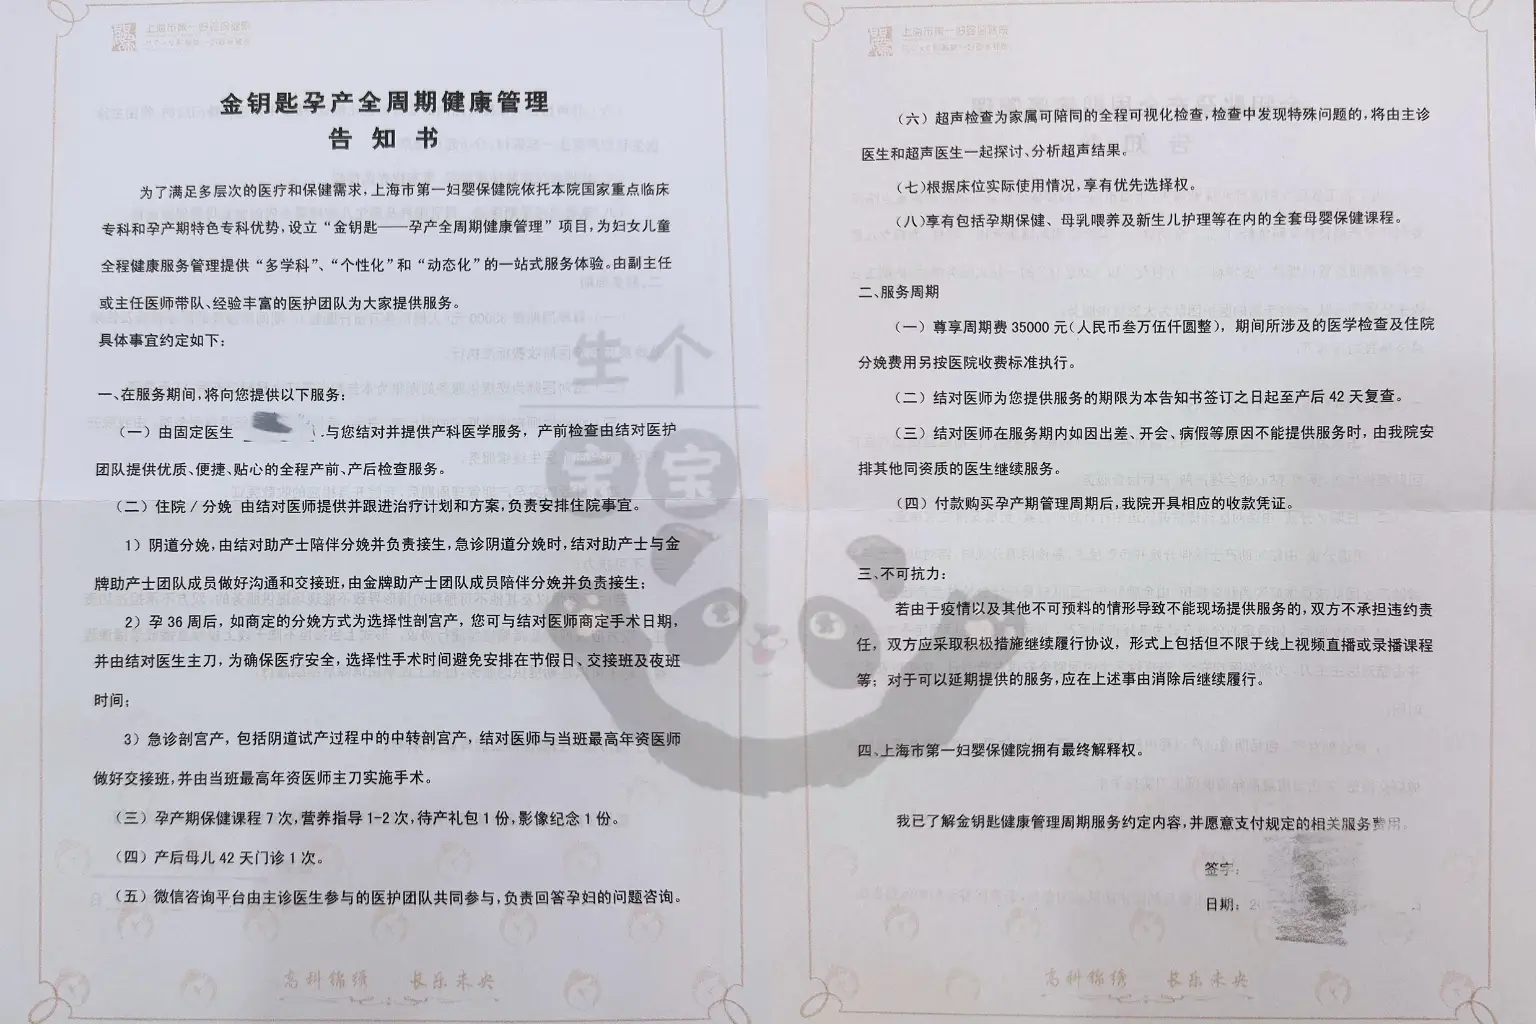 上海市第一妇婴保健院
金钥匙孕产全周期健康管理
告知书
为了满足多层次的医疗和保健需求,上海市第一妇婴保健院依托本院国家重点临床
专科和孕产期特色专科优势,设立“金钥匙——孕产全周期健康管理”项目,为妇女儿童
全程健康服务管理提供“多学科”、“个性化”和“动态化”的一站式服务体验。由副主任
或主任医师带队、经验丰富的医护团队为大家提供服务。
具体事宜约定如下:
一、在服务期间,将向您提供以下服务:
(一)由固定医生 与您结对并提供产科医学服务,产前检查由结对医护
团队提供优质、便捷、贴心的全程产前、产后检查服务。
(二)住院/分娩 由结对医师提供并跟进治疗计划和方案,负责安排住院事宜。
1)阴道分娩,由结对助产士陪伴分娩并负责接生,急诊阴道分娩时,结对助产士与金
牌助产士团队成员做好沟通和交接班,由金牌助产士团队成员陪伴分娩并负责接生;
2)孕36周后,如商定的分娩方式为选择性剖宫产,您可与结对医师商定手术日期,
并由结对医生主刀,为确保医疗安全,选择性手术时间避免安排在节假日、交接班及夜班
时间;
3)急诊剖宫产,包括阴道试产过程中的中转剖宫产,结对医师与当班最高年资医师
做好交接班,并由当班最高年资医师主刀实施手术。
(三)孕产期保健课程7次,营养指导1-2次,待产礼包1份,影像纪念1份。
(四)产后母儿42天门诊1次。
(五)微信咨询平台由主诊医生参与的医护团队共同参与,负责回答孕妇的问题咨询。
高科锦绣 长乐未央
上海市第一妇婴保健院
(六)超声检查为家属可陪同的全程可视化检查,检查中发现特殊问题的,将由主诊
医生和超声医生一起探讨、分析超声结果。
(七)根据床位实际使用情况,享有优先选择权。
(八)享有包括孕期保健、母乳喂养及新生儿护理等在内的全套母婴保健课程。
二、服务周期
(一)尊享周期费35000元(人民币叁万伍仟圆整),期间所涉及的医学检查及住院
分娩费用另按医院收费标准执行。
(二)结对医师为您提供服务的期限为本告知书签订之日起至产后42天复查。
(三)结对医师在服务期内如因出差、开会、病假等原因不能提供服务时,由我院安
排其他同资质的医生继续服务。
(四)付款购买孕产期管理周期后,我院开具相应的收款凭证。
三、不可抗力:
若由于疫情以及其他不可预料的情形导致不能现场提供服务的,双方不承担违约责
任,双方应采取积极措施继续履行协议,形式上包括但不限于线上视频直播或录播课程
等;对于可以延期提供的服务,应在上述事由消除后继续履行。
四、上海市第一妇婴保健院拥有最终解释权。
我已了解金钥匙健康管理周期服务约定内容,并愿意支付规定的相关服务费用。
签字:
日期:20
高科锦绣 长乐未央
生个
宝宝